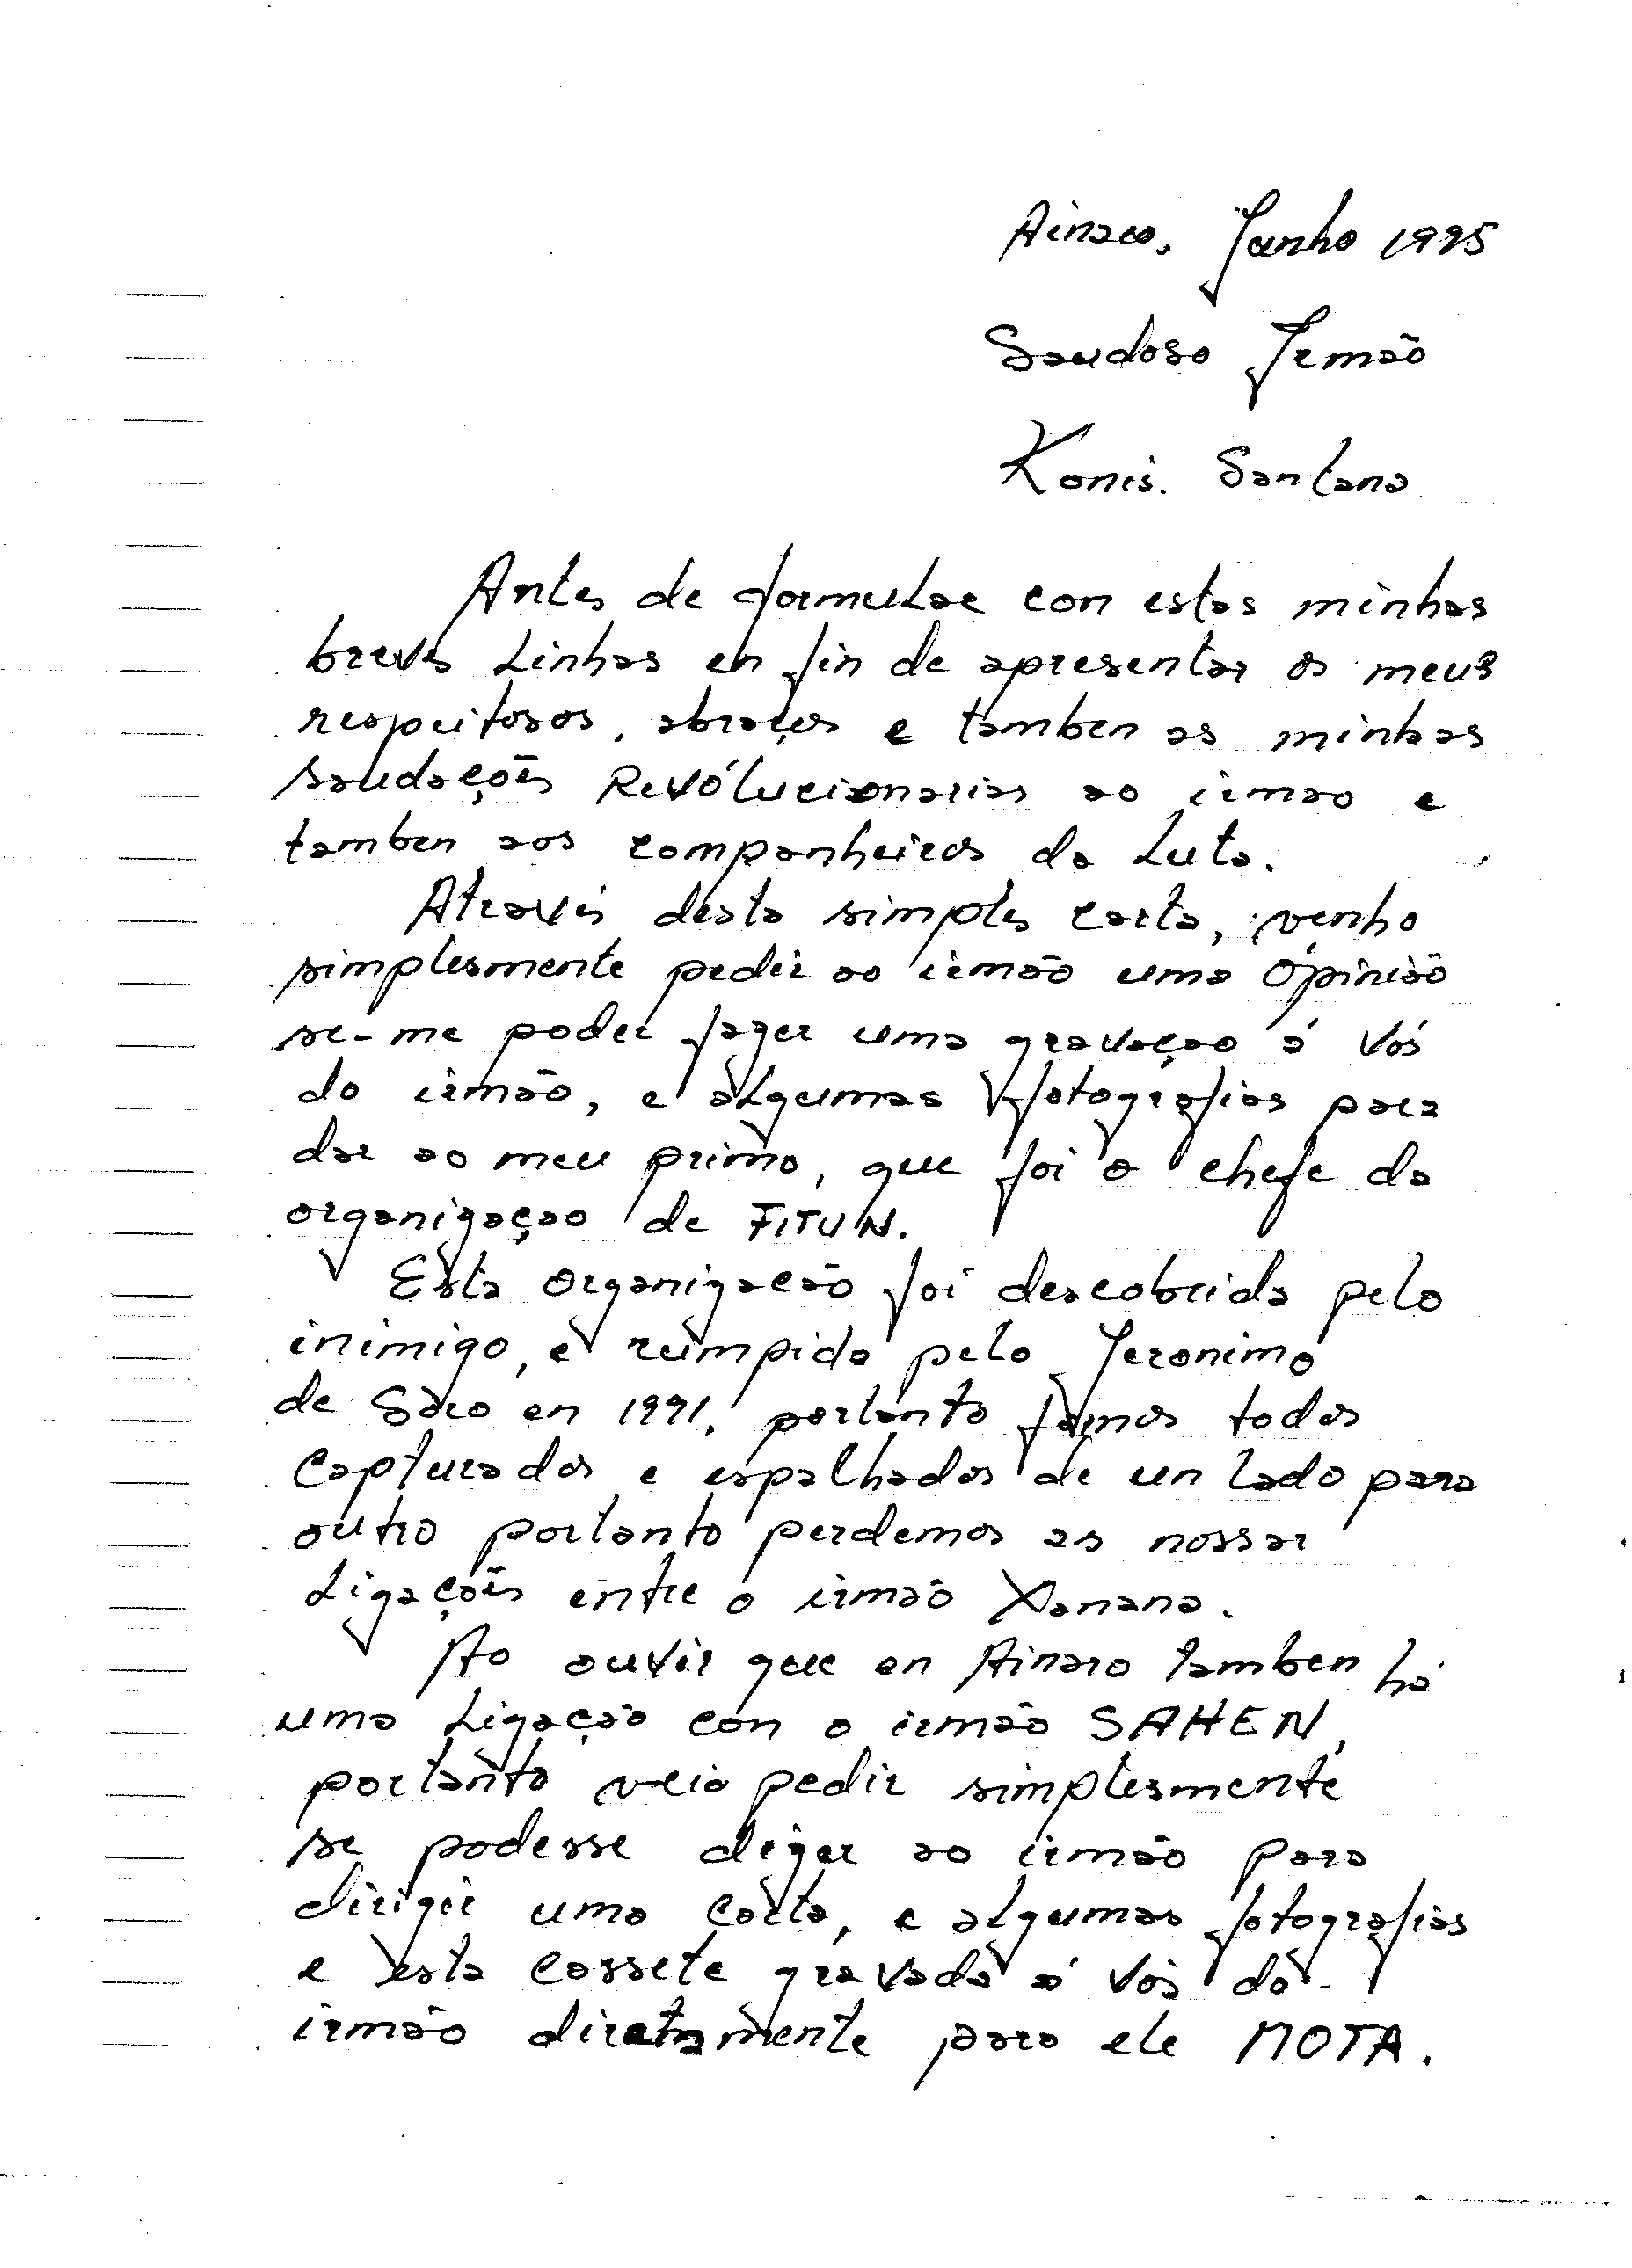 Ainaro, Junho 1995
Saudoso Irmão
Konis. Santana
Antes de formular con estas minhas
breves Linhas en fin de apresentar os meus
respeitosos, abraços e tamben as minhas
saudações Revólucionarias ao irmao e
tamben aos companheiros da Luta.
Através desta simples carta, venho
simplesmente pedir ao irmão uma Opinião
se-me poder fazer uma gravaçao á Vós
do irmão, e algumas fotografias para
dar ao meu primo, que foi o chefe da
organizaçao de FITUN.
Esta organização foi descobrida pelo
inimigo, e rumpida pelo Jeronimo
de Saro en 1991, portanto fomos todos
Capturados e espalhados de un Lado para
outro portanto perdemos as nossas
Ligações entre o irmão Xanana.
Ao ouvir que en Ainaro tamben há
uma Ligação con o irmão SAHEN,
portanto veio pedir simplesmente
se podesse dizer ao irmão para
dirigir uma Carta, e algumas fotografias
e esta cassete gravada á Vós do
irmão diretamente para ele MOTA.